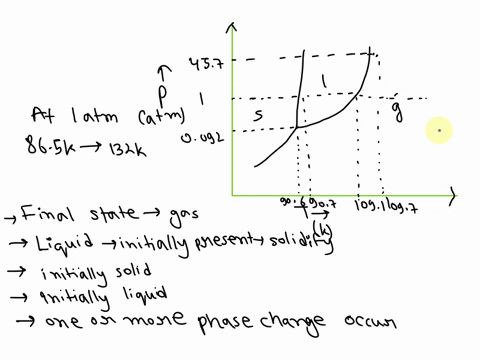 45.7
↑
P
(atm)
1
l
s
g
0.092
At 1 atm
86.5k → 132k
90.6 90.7 109.1 109.7
→
(k)
→ Final state → gas
→ Liquid → initially present → solidify
→ initially solid
→ initially liquid
→ one or more phase change occur